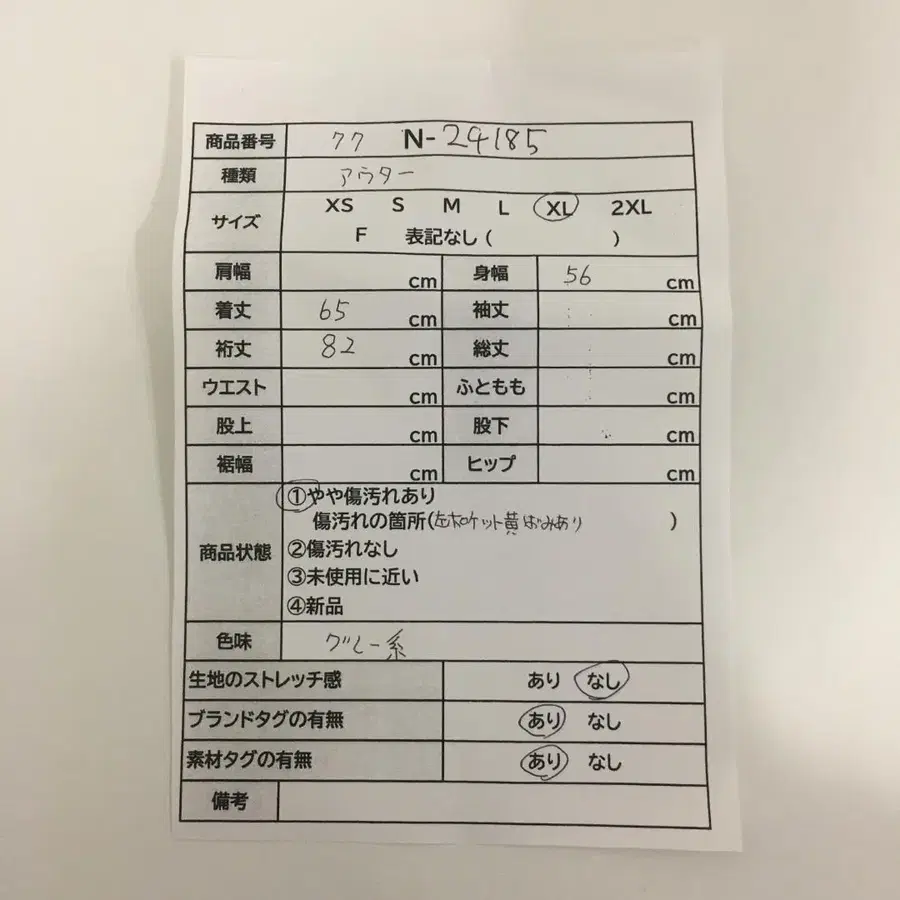 商品番号 77 N-24185
種類 アウター
サイズ XS S M L XL 2XL
F 表記なし ( )
肩幅 cm 身幅 56 cm
着丈 65 cm 袖丈 cm
裄丈 82 cm 総丈 cm
ウエスト cm ふともも cm
股上 cm 股下 cm
裾幅 cm ヒップ cm
商品状態 ①やや傷汚れあり
傷汚れの箇所(左右ポケット黄ばみあり )
②傷汚れなし
③未使用に近い
④新品
色味 グレー系
生地のストレッチ感 あり なし
ブランドタグの有無 あり なし
素材タグの有無 あり なし
備考